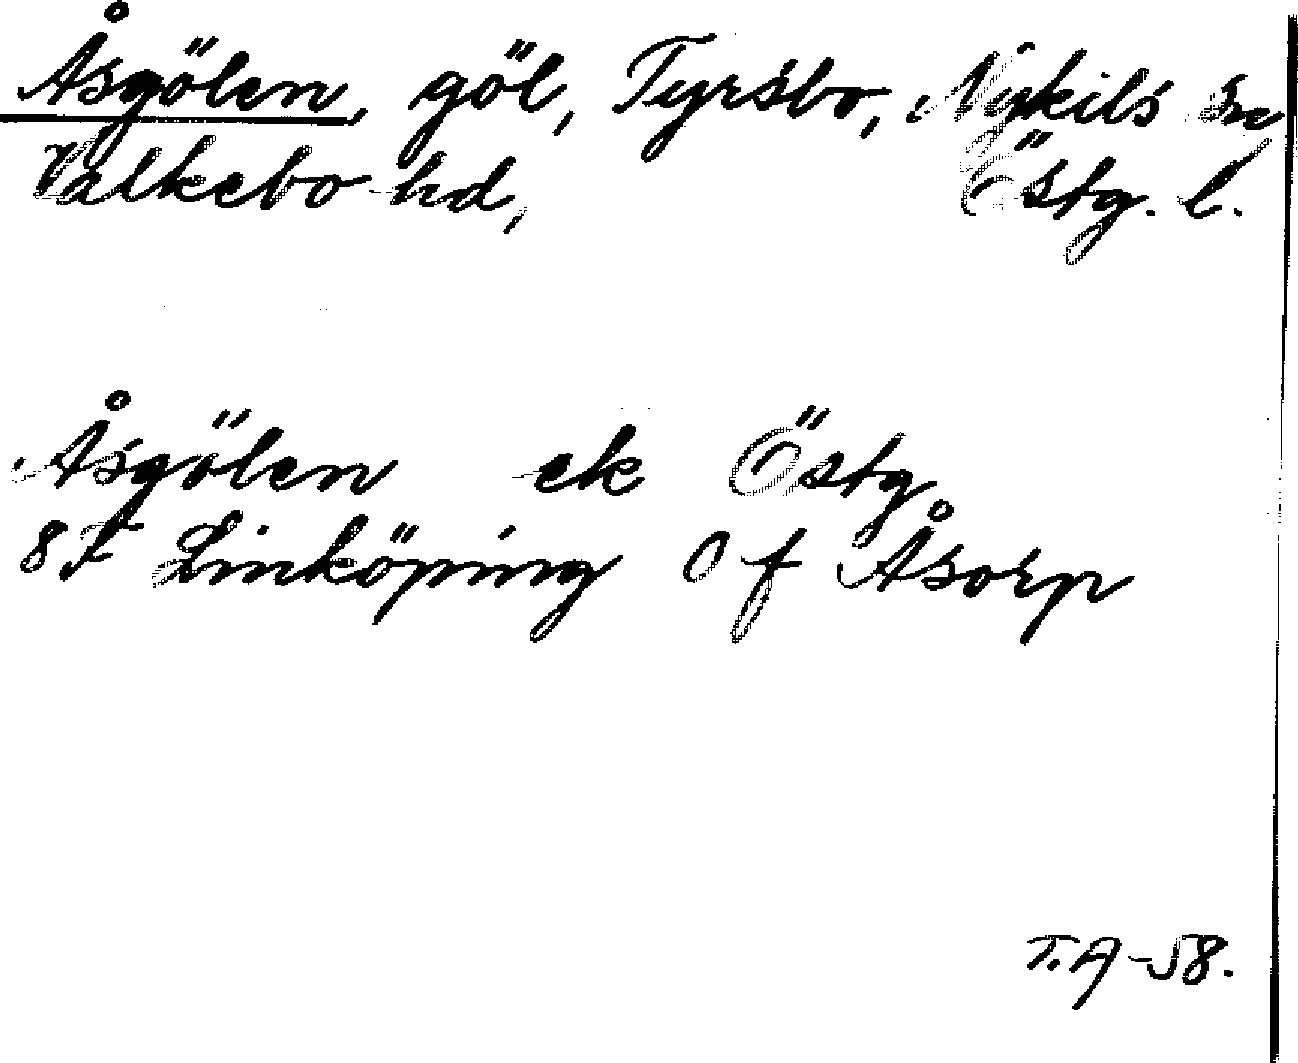 Åsgölen, göl, Tyrsbo, Nykils sn
Valkebo hd, Östg. l.
Åsgölen ek Östg
8F Linköping 0 f Åsorp
T.A-58.